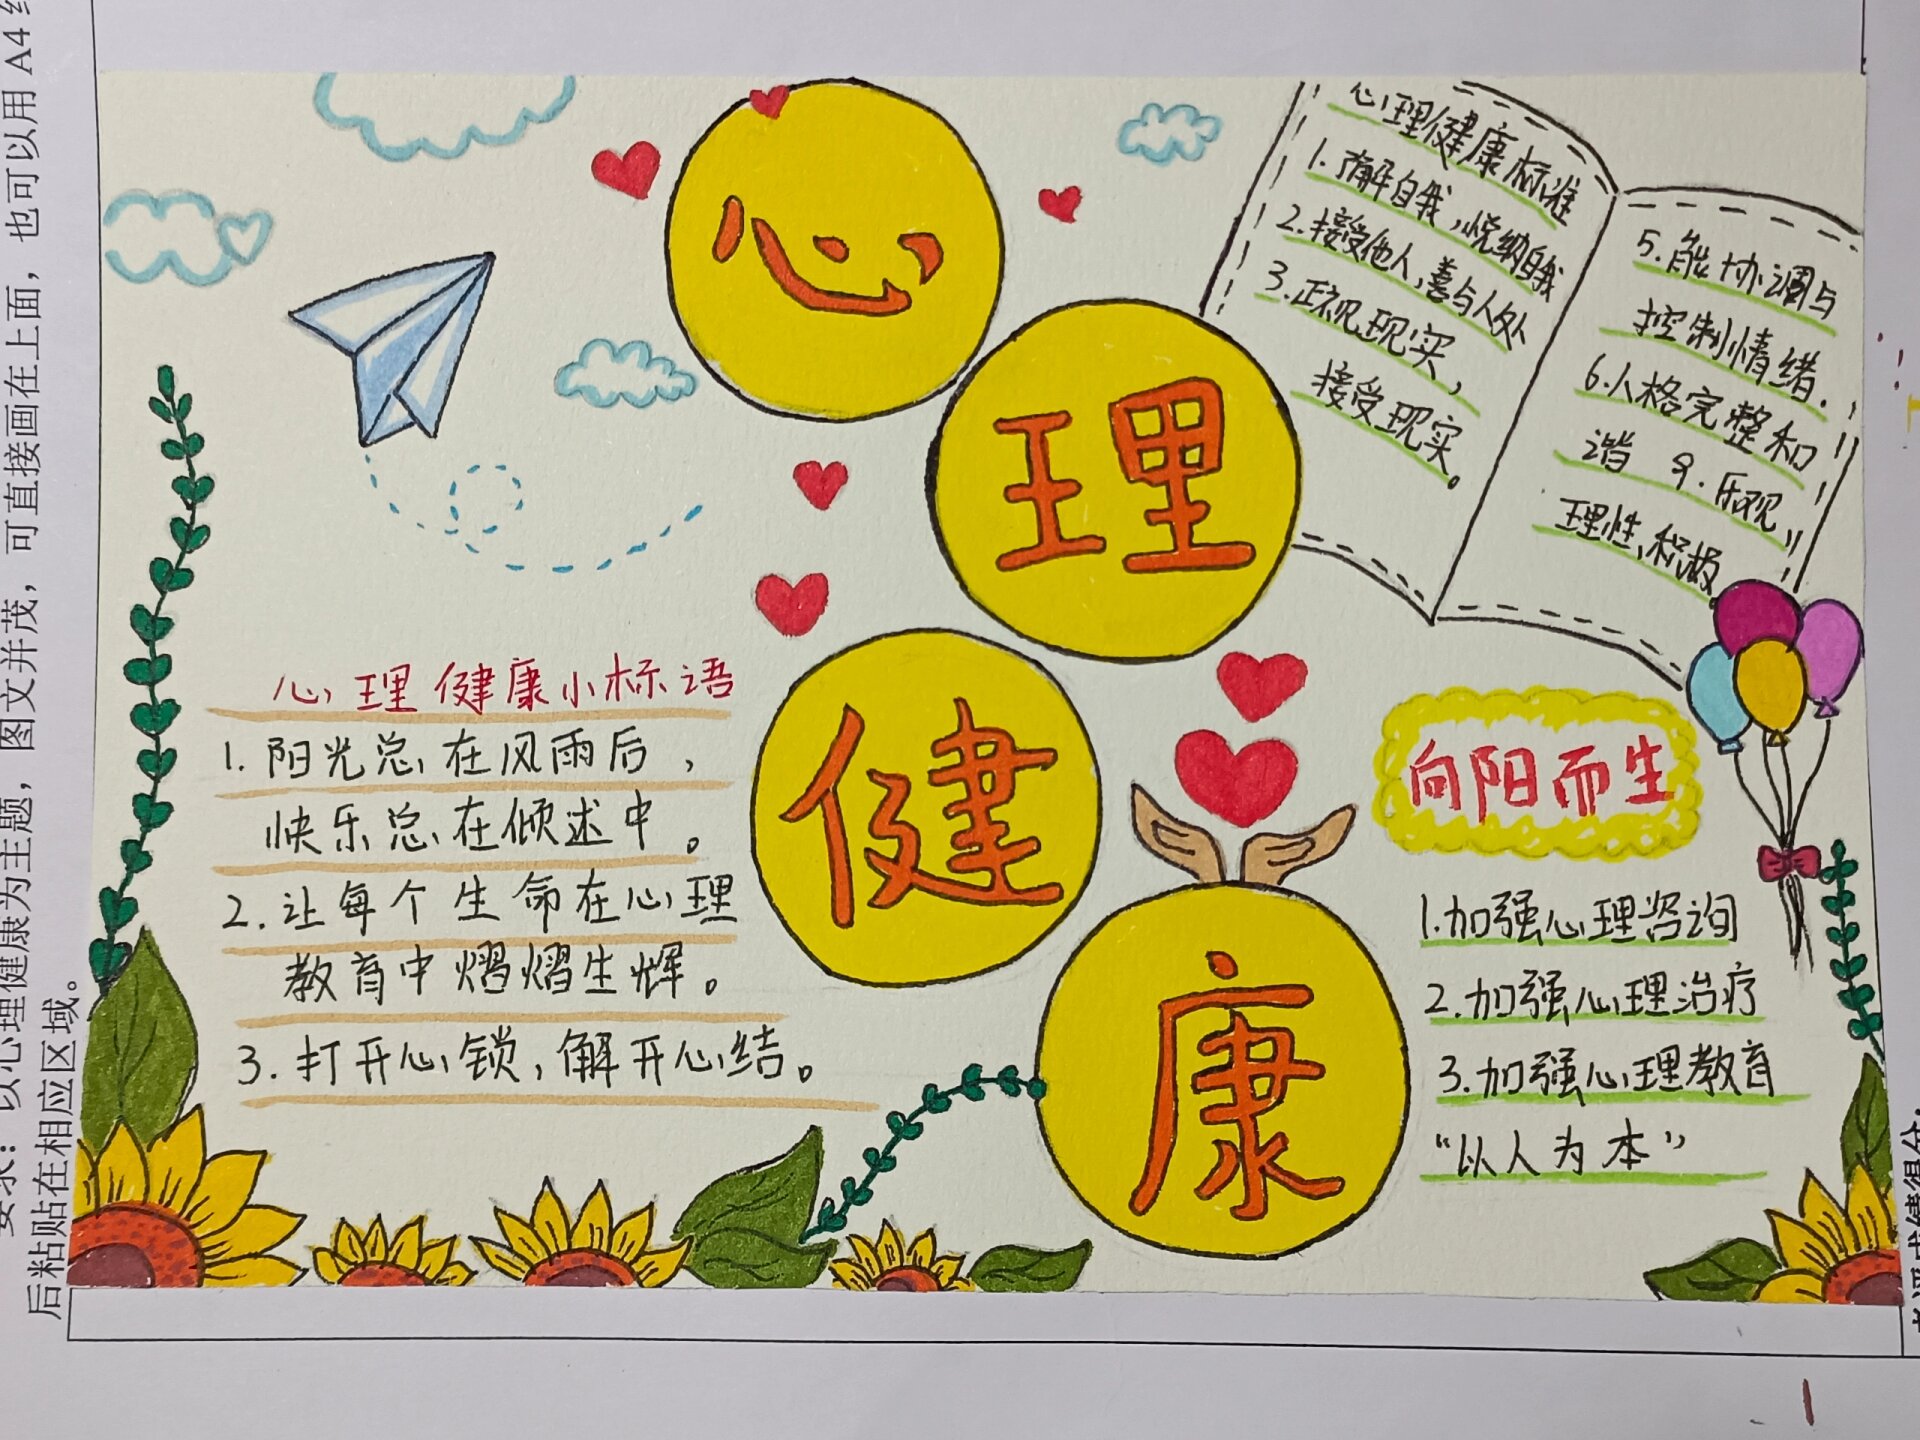 心理健康
心理健康标准
1.了解自我，悦纳自我
2.接受他人，善与人处
3.正视现实，
接受现实。
5.能协调与
控制情绪.
6.人格完整和
谐 9.乐观，
理性，积极
心理健康小标语
1.阳光总在风雨后，
快乐总在倾述中。
2.让每个生命在心理
教育中熠熠生辉。
3.打开心锁，解开心结。
向阳而生
1.加强心理咨询
2.加强心理治疗
3.加强心理教育
“以人为本”
以心理健康为主题，图文并茂，可直接画在上面，也可以用A4
后粘贴在相应区域。